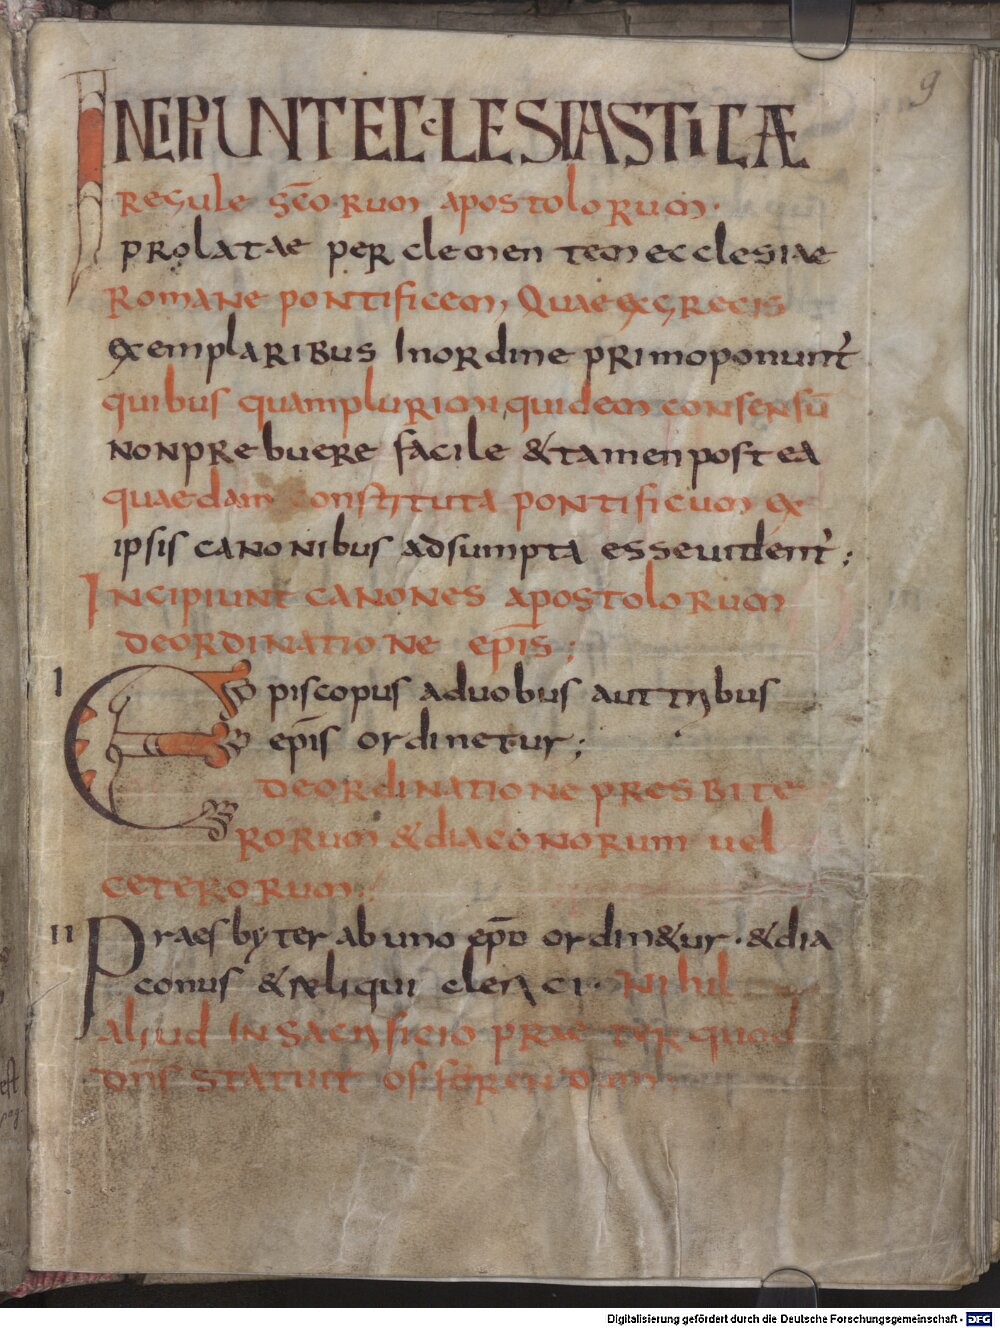 9
INCIPIUNT ECCLESIASTICÆ
regule scōrum apostolorum.
prolatae per clementem ecclesiae
romane pontificem, Quae ex grecis
exemplaribus In ordine primo ponunt̄
quibus quam plurimi, quidem consensū
non prebuere facile & tamen postea
quaedam constituta pontificum ex
ipsis canonibus adsumpta esse uident̄;
Incipiunt canones apostolorum
de ordinatione epīs;
I Episcopus a duobus aut tribus
epīs ordinetur;
de ordinatione presbite
rorum & diaconorum uel
ceterorum;
II Praesbyter ab uno ep̄o ordin&ur. & dia
conus & reliqui clerici. Nihil
aliud In sacrificio praeter quod
dn̄s statuit offerendum;
Digitalisierung gefördert durch die Deutsche Forschungsgemeinschaft - DFG